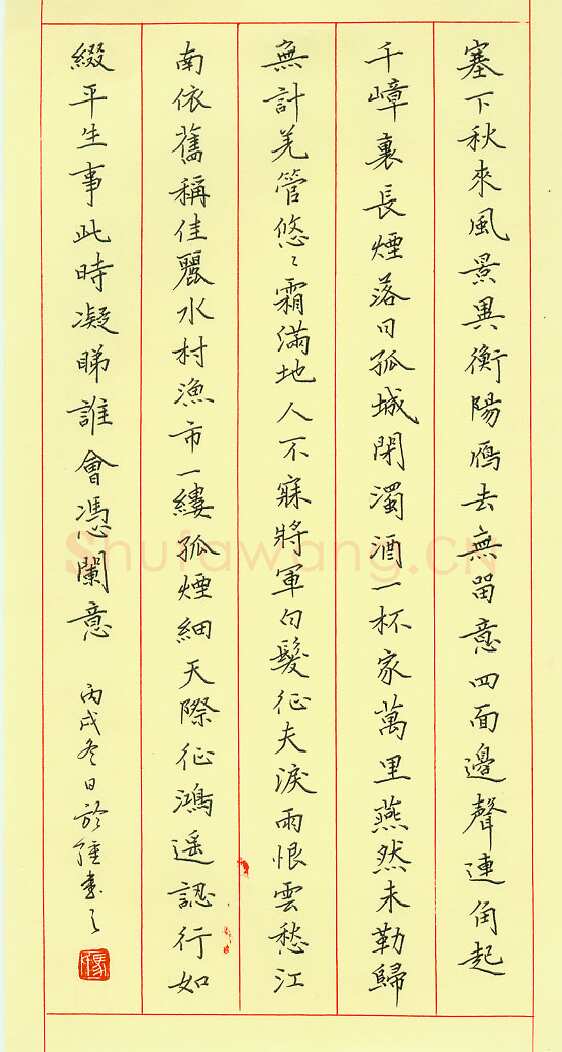 塞下秋來風景異衡陽鴈去無留意四面邊聲連角起
千嶂裏長煙落日孤城閉濁酒一杯家萬里燕然未勒歸
無計羌管悠〻霜滿地人不寐將軍白髮征夫淚雨恨雲愁江
南依舊稱佳麗水村漁市一縷孤煙細天際征鴻遥認行如
綴平生事此時凝睇誰會憑闌意
丙戌冬日於書之
Shufawang.CN